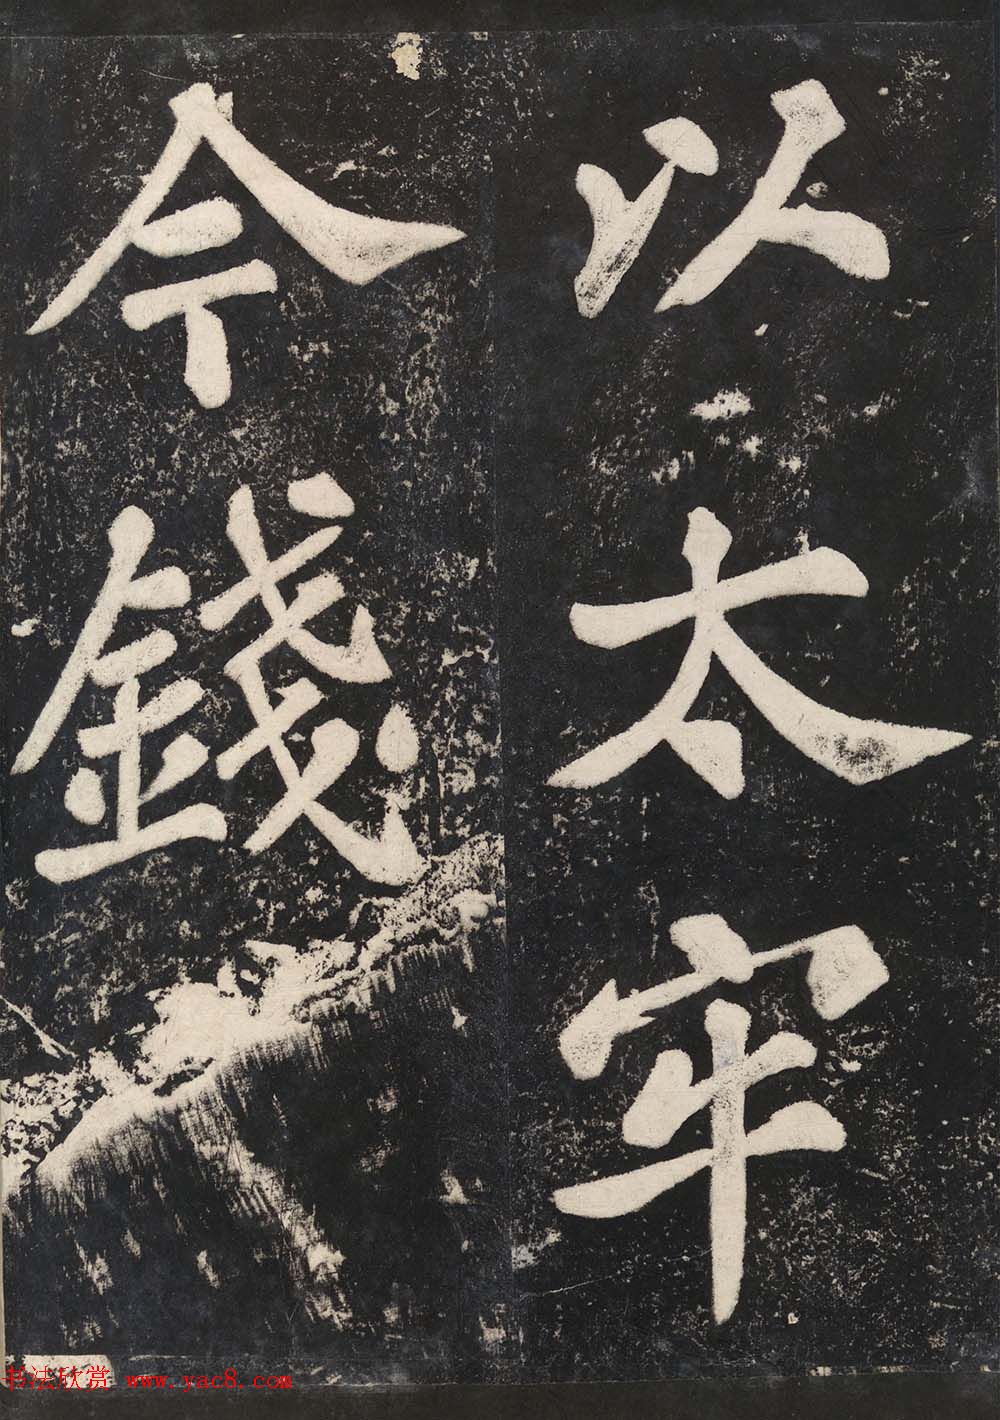 以太牢
今錢
书法欣赏 www.yac8.com